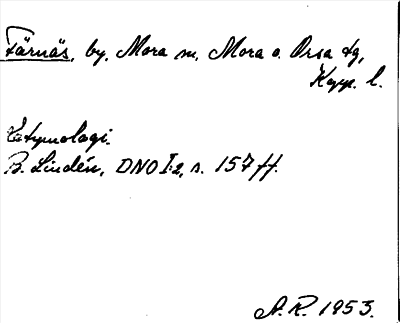 Färnäs, by, Mora sn, Mora o. Orsa tg,
Kopp. l.
Etymologi.
B. Lindén, DNO I:2, s. 157 ff.
A. R. 1953.